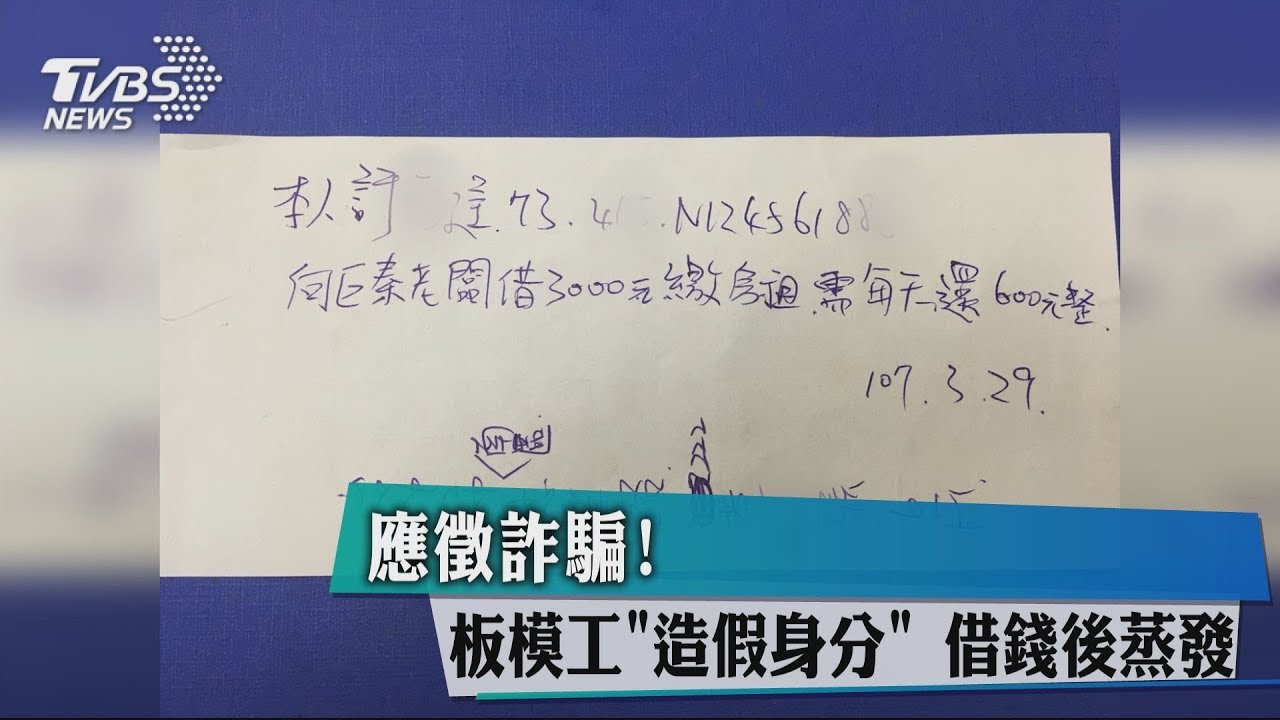 TVBS
NEWS
本人許 廷.73.4 .N12456188
向巨秦老闆借3000元繳房租.需每天還600元整.
107.3.29.
應徵詐騙!
板模工"造假身分" 借錢後蒸發